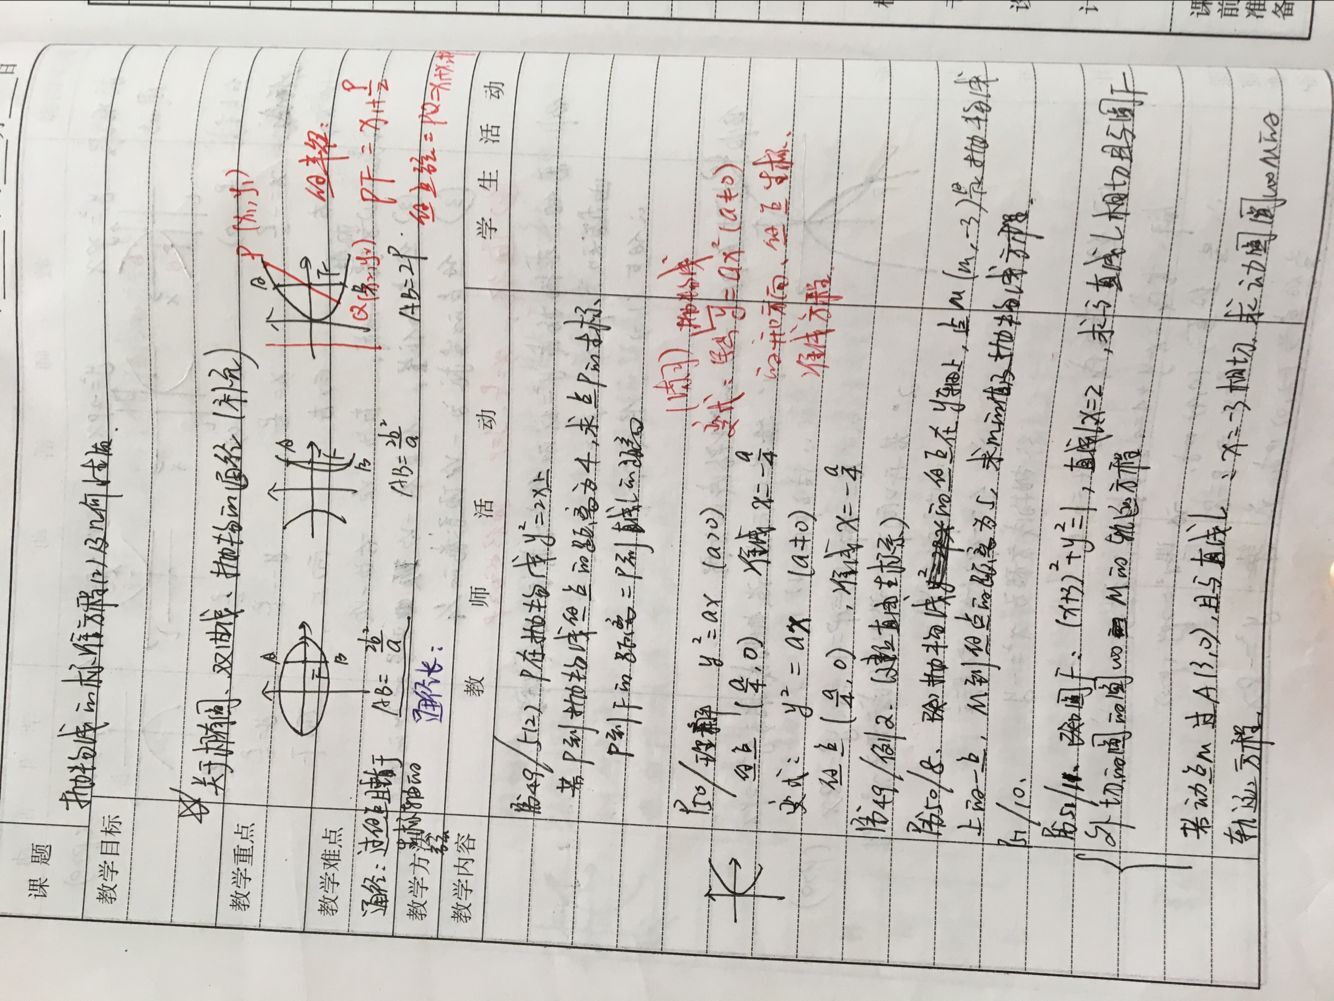 课前准备
课题
抛物线的标准方程(2)及几何性质
教学目标
关于椭圆、双曲线、抛物的通径(补充)
教学重点
教学难点
A
F
B
A
F
B
A
F
B
P (x₁,y₁)
Q(x₂,y₂)
焦半径:
PF = x₁+p/2
通径: 过焦点且垂直于
AB=2b²/a
AB=2b²/a
AB=2P.
教学方法
通径长:
教学内容
教 师 活 动
学 生 活 动
P49/5(2) P在抛物线y²=2x上
若P到抛物线焦点的距离为4,求点P的坐标.
P到F的距离=P到直线l的距离
抛物线
P50/理解 y²=ax (a>0)
变式: y=ax² (a≠0)
焦点 (a/4, 0) 准线 x=-a/4
的开口方向、焦点坐标、
变式: y²=ax (a≠0)
准线方程
焦点 (a/4, 0), 准线 x=-a/4
P49/例2. (建立直角坐标系)
P50/8. 抛物线的焦点在y轴上,点M(m,-3)是抛物线
上的一点, M到焦点的距离为5, 求m的值及抛物线方程.
P51/10.
P51/11. 圆F: (x+3)²+y²=1, 直线x=2, 求与直线l相切且与圆F
外切的圆的圆心M的轨迹方程
若动点M过A(3,0),且与直线l: x=-3相切,求动圆圆心M的
轨迹方程